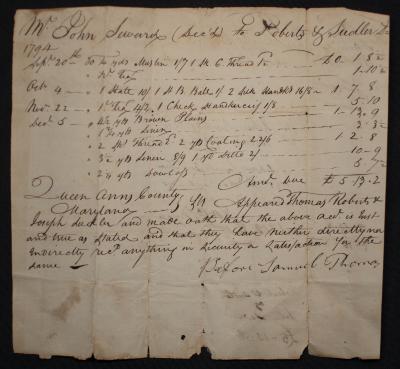 Mr John Seward (Dec'd) To Roberts & Sudler Dr
1794
Sepr 20th To yds Muslin 1/7 1 St C thread £0. 1. 5½
1-10½
Octr 4 1 Skate 10/ 1 St B. Ball 1/ 2 Silk Handkfs 16/8 1. 7. 8
Novr 22 1 Check Handkerchief 1/8 5-10
Decr 5 4½ yds Brown Plains 1-13. 9
yd Linen 3. 3½
2 Sk Thread 2 yds Coating 22/6 1. 2. 8
3½ yds Linen 1 yd Ditto 2/ 10-9
2¼ yds
Amt due £5 13. 2
Queen Anns County,
Maryland Appeared Thomas Roberts &
Joseph Sudler and made oath that the above acct is Just
and true as Stated and that they have neither directly nor
Indirectly recd anything in Security or Satisfaction for the
Same
Before Samuel Thomas